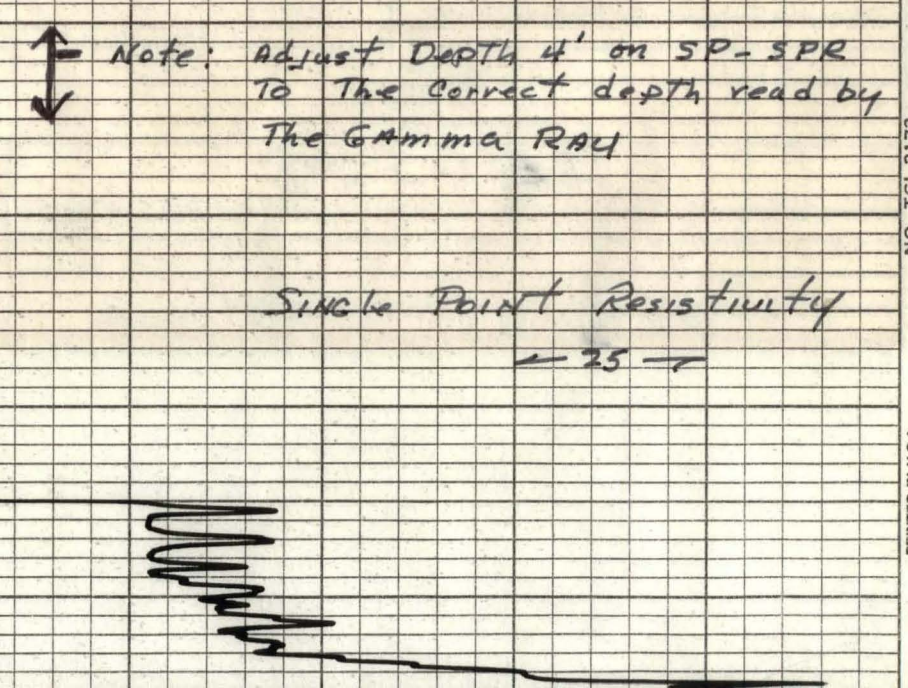 Note: Adjust Depth 4' on SP-SPR
To The Correct depth read by
The GAmma RAy
SINGle POINt Resistivity
← 25 →